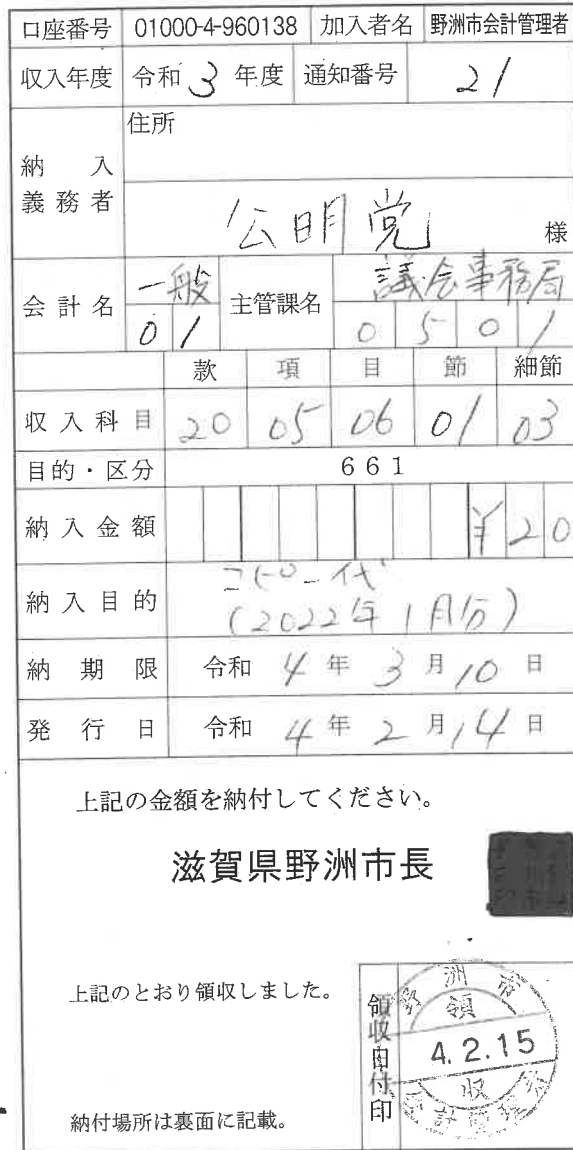 口座番号 01000-4-960138 加入者名 野洲市会計管理者
収入年度 令和 3 年度 通知番号 21
住所
納入義務者
公明党 様
会計名 一般 主管課名 議会事務局
01 0501
款 項 目 節 細節
収入科目 20 05 06 01 03
目的・区分 661
納入金額 ¥20
納入目的 コピー代
(2022年1月分)
納期限 令和 4 年 3 月 10 日
発行日 令和 4 年 2 月 14 日
上記の金額を納付してください。
滋賀県野洲市長
上記のとおり領収しました。
領収日付印
野洲市
領
4.2.15
収
納付場所は裏面に記載。